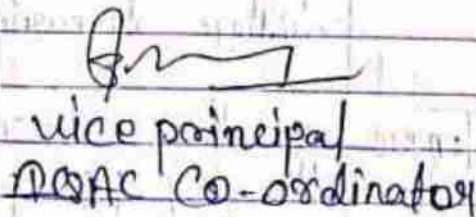 vice principal
IQAC Co-ordinator